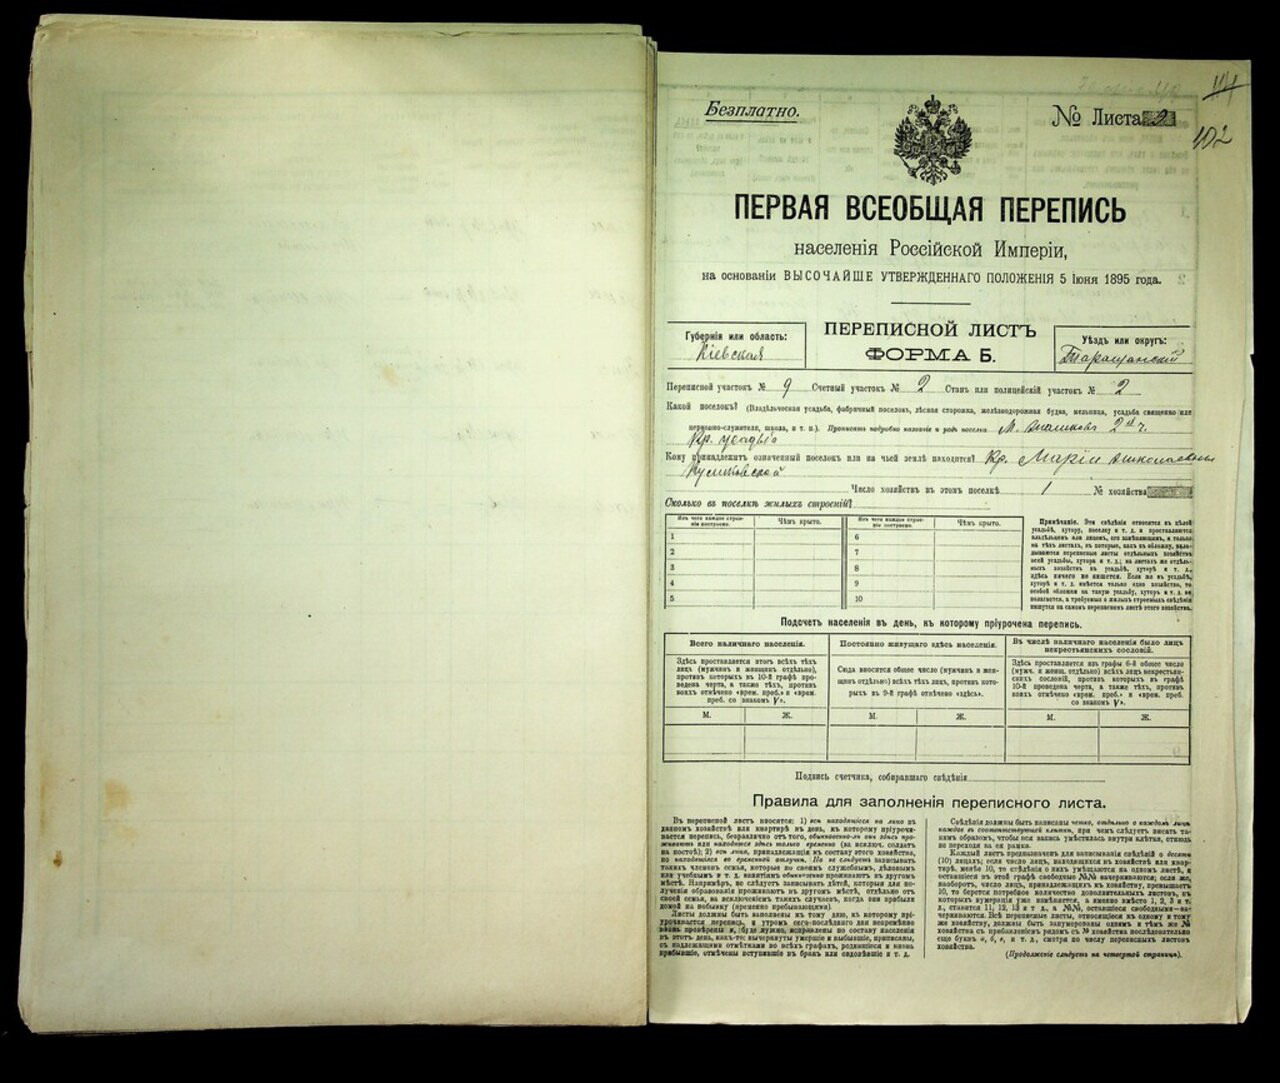 Безплатно.
№ Листа 2
102
ПЕРВАЯ ВСЕОБЩАЯ ПЕРЕПИСЬ
населенія Россійской Имперіи,
на основаніи ВЫСОЧАЙШЕ УТВЕРЖДЕННАГО ПОЛОЖЕНІЯ 5 Іюня 1895 года.
Губернія или область:
Кіевская
ПЕРЕПИСНОЙ ЛИСТЪ
ФОРМА Б.
Уѣздъ или округъ:
Таращанскій
Переписной участокъ № 9 Счетный участокъ № 2 Станъ или полицейскій участокъ № 2
Какой поселокъ? (Владѣльческая усадьба, фабричный поселокъ, лѣсная сторожка, желѣзнодорожная будка, мельница, усадьба священно или
церковно-служителя, школа, и т. п.). Прописать подробно названіе и родъ поселка М. 2 ч.
Кр. усадьба
Кому принадлежитъ означенный поселокъ или на чьей землѣ находится? Кр. Маріи Николаевны
Число хозяйствъ въ этомъ поселкѣ 1 № хозяйства
Сколько въ поселкѣ жилыхъ строеній?
Изъ чего каждое строеніе построено.
Чѣмъ крыто.
Изъ чего каждое строеніе построено.
Чѣмъ крыто.
1
2
3
4
5
6
7
8
9
10
Примѣчаніе. Эти свѣдѣнія относятся къ цѣлой
усадьбѣ, хутору, поселку и т. д. и проставляются
владѣльцемъ или лицомъ, его замѣняющимъ, и только
на тѣхъ листахъ, въ которые, какъ въ обложку, вкла-
дываются переписные листы отдѣльныхъ хозяйствъ
всей усадьбы, хутора и т. д.; на листахъ же отдѣль-
ныхъ хозяйствъ въ усадьбѣ, хуторѣ и т. д.,
здѣсь ничего не пишется. Если же въ усадьбѣ,
хуторѣ и т. д. имѣется только одно хозяйство, то
особой обложки на такую усадьбу, хуторъ и т. д. не
полагается, а требуемыя о жилыхъ строеніяхъ свѣдѣнія
пишутся на самомъ переписномъ листѣ этого хозяйства.
Подсчетъ населенія въ день, къ которому пріурочена перепись.
Всего наличнаго населенія.
Здѣсь проставляется итогъ всѣхъ тѣхъ
лицъ (мужчинъ и женщинъ отдѣльно),
противъ которыхъ въ 10-й графѣ про-
ведена черта, а также тѣхъ, противъ
коихъ отмѣчено «врем. преб.» и «врем.
преб. со знакомъ V».
Постоянно живущаго здѣсь населенія.
Сюда вносится общее число (мужчинъ и жен-
щинъ отдѣльно) всѣхъ тѣхъ лицъ, противъ кото-
рыхъ въ 9-й графѣ отмѣчено «здѣсь».
Въ числѣ наличнаго населенія было лицъ
некрестьянскихъ сословій.
Здѣсь проставляется изъ графы 6-й общее число
(мужч. и женщ. отдѣльно) всѣхъ лицъ некрестьян-
скихъ сословій, противъ которыхъ въ графѣ
10-й проведена черта, а также тѣхъ, противъ
коихъ отмѣчено «врем. преб.» и «врем. преб.
со знакомъ V».
М. Ж. М. Ж. М. Ж.
Подпись счетчика, собиравшаго свѣдѣнія
Правила для заполненія переписного листа.
Въ переписной листъ вносятся: 1) всѣ находящіеся на лицо въ
данномъ хозяйствѣ или квартирѣ въ день, къ которому пріурочи-
вается перепись, безразлично отъ того, обыкновенно-ли они здѣсь про-
живаютъ или находятся здѣсь только временно (за исключ. солдатъ
на постоѣ); 2) всѣ лица, принадлежащія къ составу этого хозяйства,
но находящіяся во временной отлучкѣ. Но не слѣдуетъ записывать
такихъ членовъ семьи, которые по своимъ служебнымъ, дѣловымъ
или учебнымъ и т. д. занятіямъ обыкновенно проживаютъ въ другомъ
мѣстѣ. Напримѣръ, не слѣдуетъ записывать дѣтей, которыя для по-
лученія образованія проживаютъ въ другомъ мѣстѣ, отдѣльно отъ
своей семьи, за исключеніемъ такихъ случаевъ, когда они прибыли
домой на побывку (временно пребывающими).
Листы должны быть заполнены къ тому дню, къ которому прі-
урочивается перепись, и утромъ сего-послѣдняго дня непремѣнно
вновь провѣрены и, буде нужно, исправлены по составу населенія
въ этотъ день, какъ-то: вычеркнуты умершіе и выбывшіе, приписаны,
съ надлежащими отмѣтками во всѣхъ графахъ, родившіеся и вновь
прибывшіе, отмѣчены вступившіе въ бракъ или овдовѣвшіе и т. д.
Свѣдѣнія должны быть написаны четко, отдѣльно о каждомъ лицѣ
каждое въ соотвѣтствующей клѣткѣ, при чемъ слѣдуетъ писать та-
кимъ образомъ, чтобы вся запись умѣстилась внутри клѣтки, отнюдь
не переходя за ея рамки.
Каждый листъ предназначенъ для записыванія свѣдѣній о десяти
(10) лицахъ; если число лицъ, находящихся въ хозяйствѣ или квар-
тирѣ, менѣе 10, то свѣдѣнія о нихъ умѣщаются на одномъ листѣ, а
оставшіеся въ этой графѣ свободные №№ зачеркиваются; если же,
наоборотъ, число лицъ, принадлежащихъ къ хозяйству, превышаетъ
10, то берется потребное количество дополнительныхъ листовъ, въ
которыхъ нумерація уже измѣняется, а именно вмѣсто 1, 2, 3 и т.
д., ставятся 11, 12, 13 и т. д., а №№, оставшіеся свободными—за-
черкиваются. Всѣ переписные листы, относящіеся къ одному и тому
же хозяйству, должны быть занумерованы однимъ и тѣмъ же №
хозяйства съ прибавленіемъ рядомъ съ № хозяйства послѣдовательно
еще буквъ а, б, в, и т. д., смотря по числу переписныхъ листовъ
хозяйства.
(Продолженіе слѣдуетъ на четвертой страницѣ).